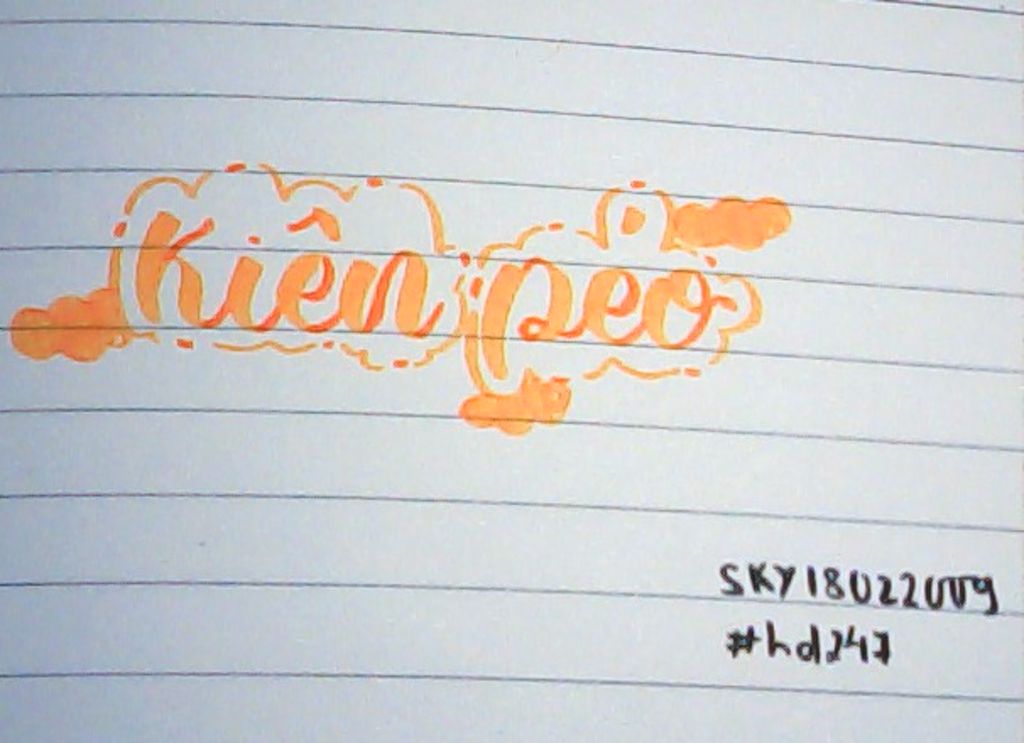 Kiên péo
SKY18022009
#hd247